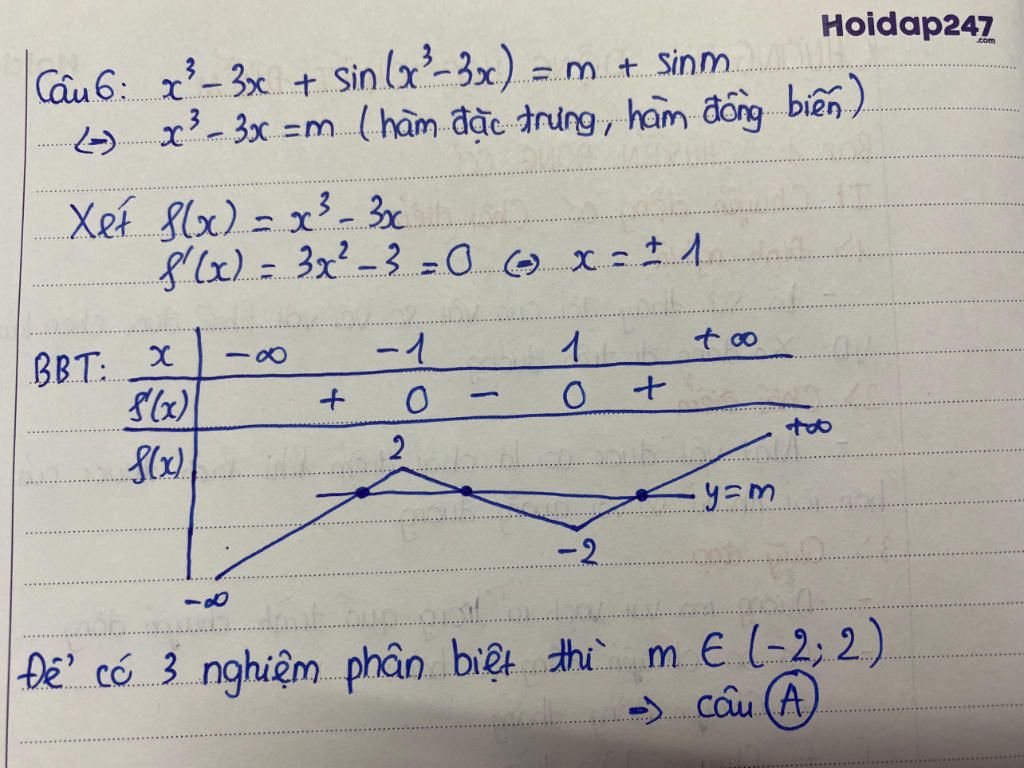 Hoidap247
.com
Câu 6: x³ - 3x + sin(x³ - 3x) = m + sinm
<=> x³ - 3x = m (hàm đặc trưng, hàm đồng biến)
Xét f(x) = x³ - 3x
f'(x) = 3x² - 3 = 0 <=> x = ± 1
BBT: x -∞ -1 1 +∞
f'(x) + 0 - 0 +
f(x) 2 +∞
y = m
-2
-∞
Để có 3 nghiệm phân biệt thì m ∈ (-2; 2)
=> câu A